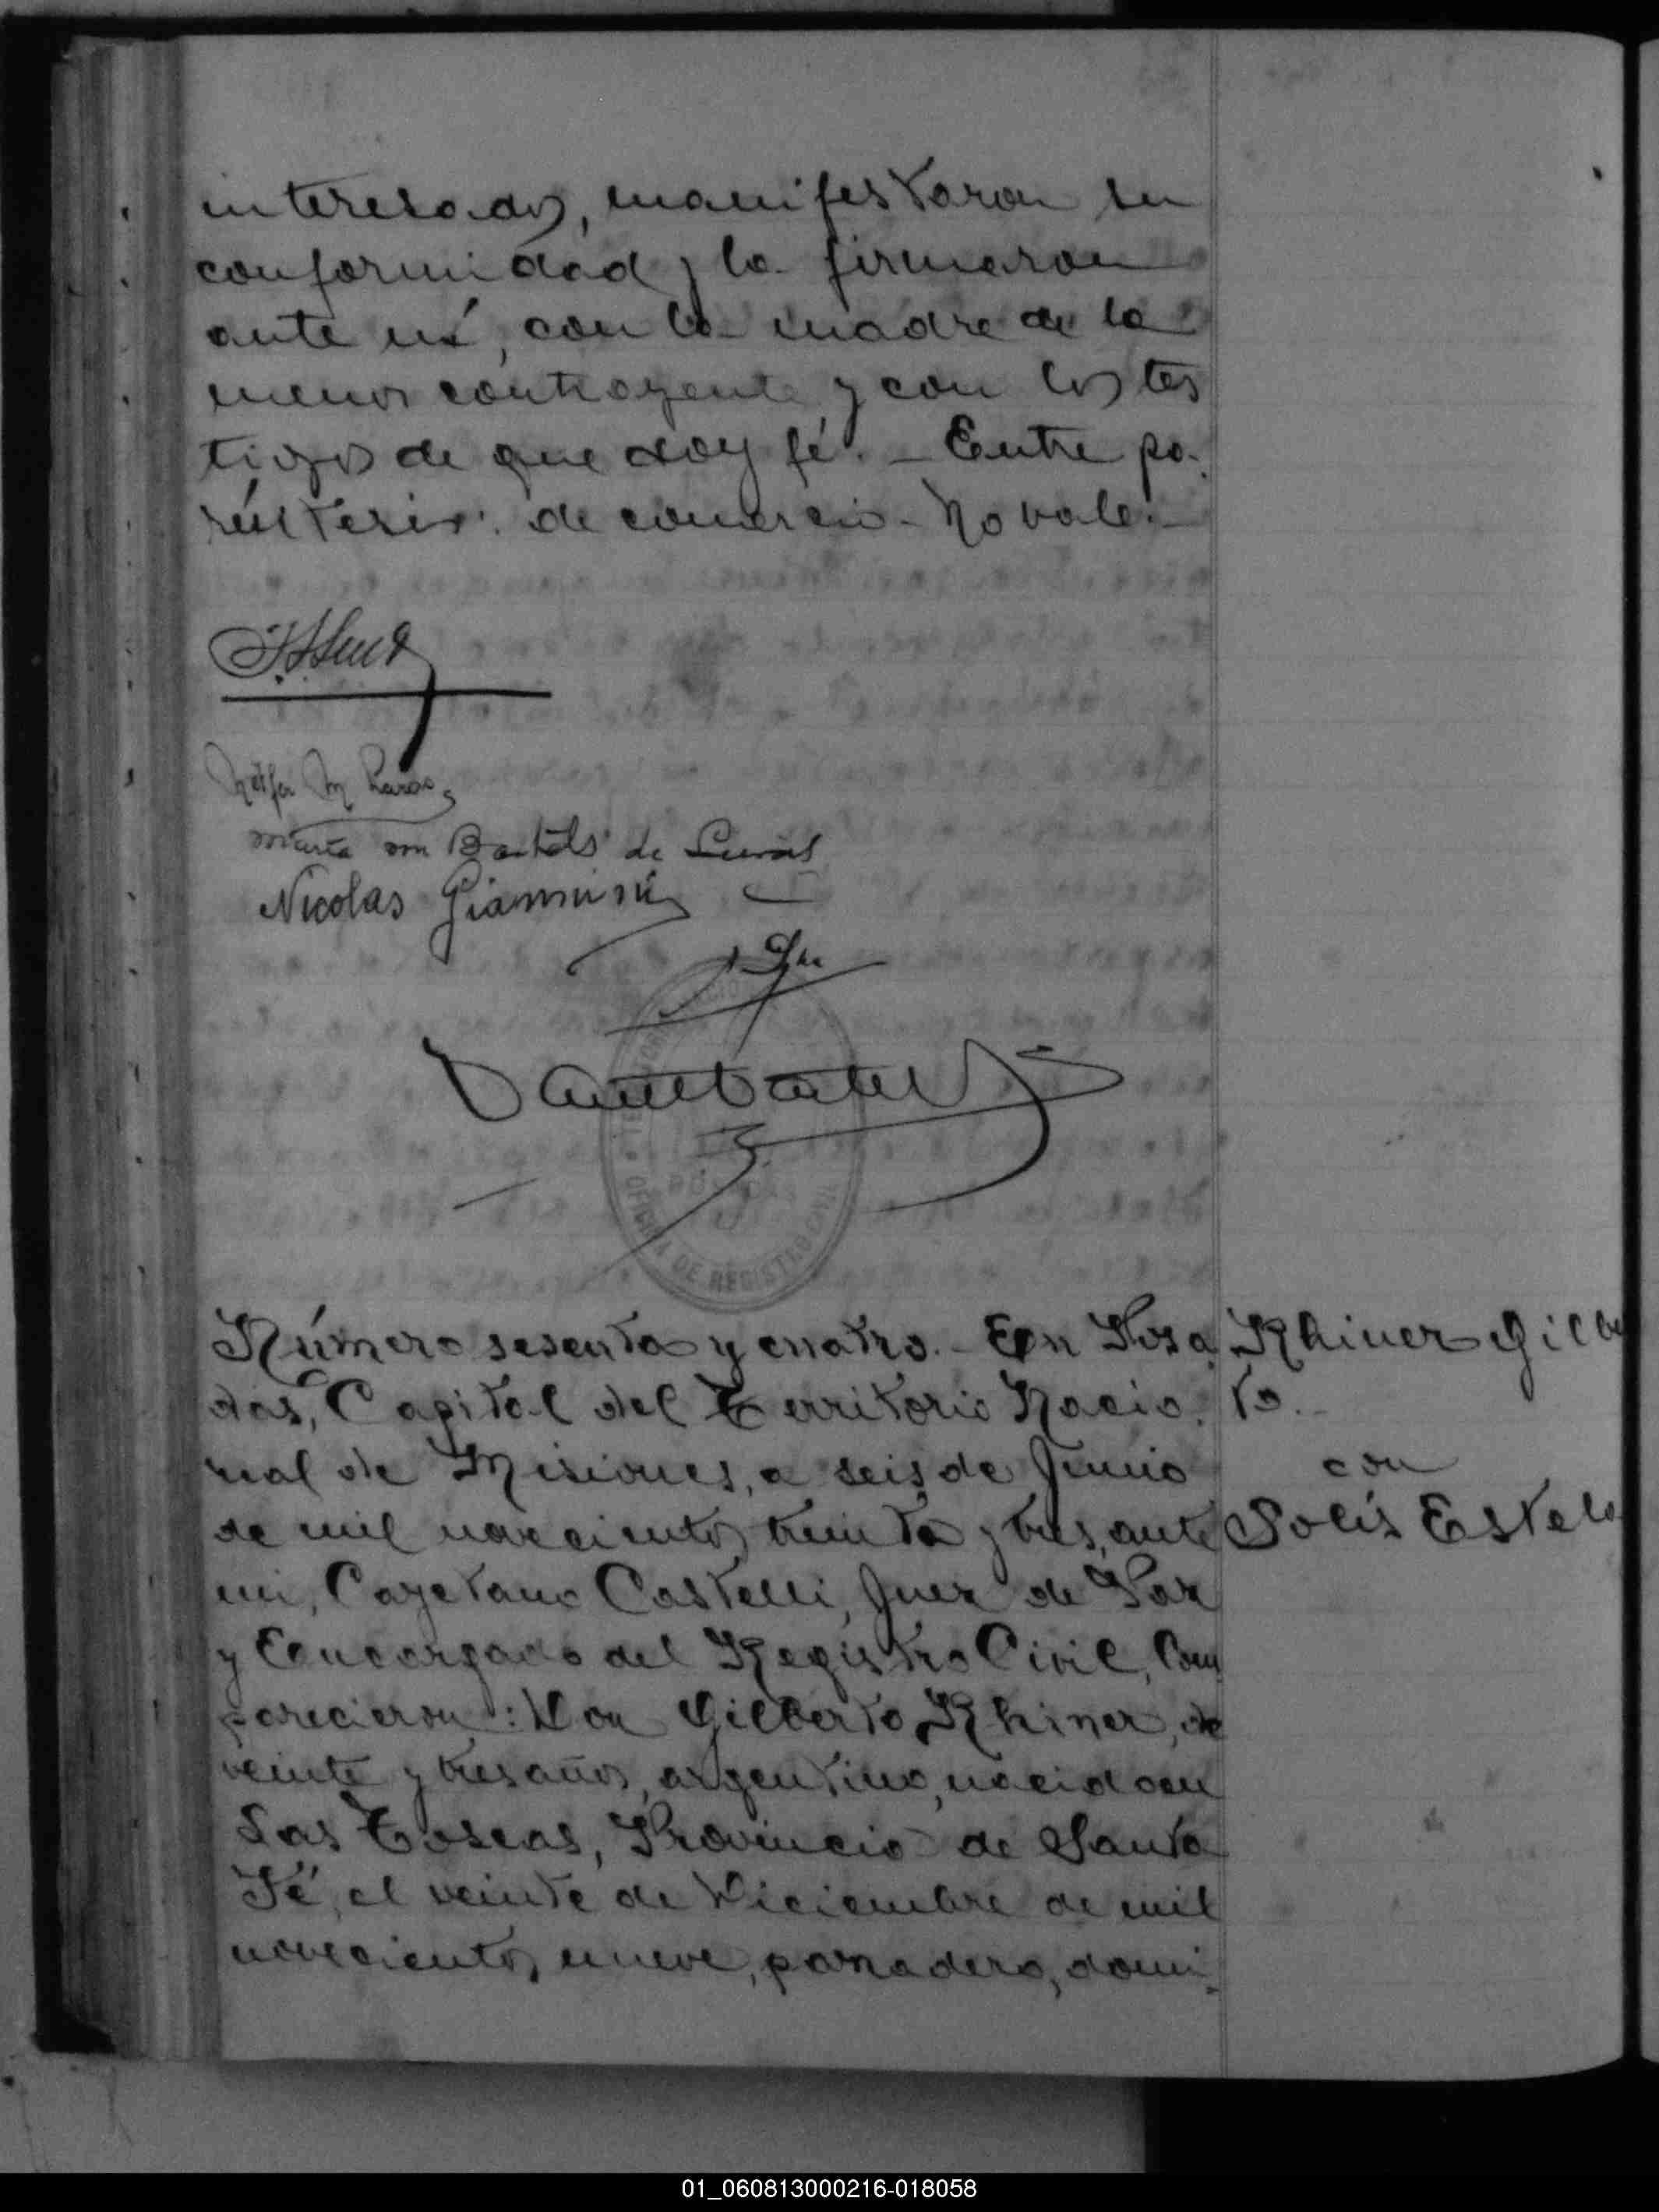 interesados, manifestaron su
conformidad y la firmaron
ante mí, con la madre de la
menor contrayente y con los tes
tigos de que doy fé. - Entre pa-
réntesis: de comercio - No vale. -
Marta von Bartels de
Nicolas Giannini
OFICINA DE REGISTRO CIVIL
POSADAS
Número sesenta y cuatro. - En Posa
das, Capital del Territorio Nacio-
nal de Misiones, a seis de Junio
de mil novecientos treinta y tres, ante
mi, Cayetano Castelli, Juez de Paz
y Encargado del Registro Civil, Com
parecieron: Don Gilberto Rhiner, de
veinte y tres años, argentino, nacido en
Las Toscas, Provincia de Santa
Fé, el veinte de Diciembre de mil
novecientos nueve, panadero, domi-
Rhiner Gilbe
to. -
con
Solís Estela
01_060813000216-018058